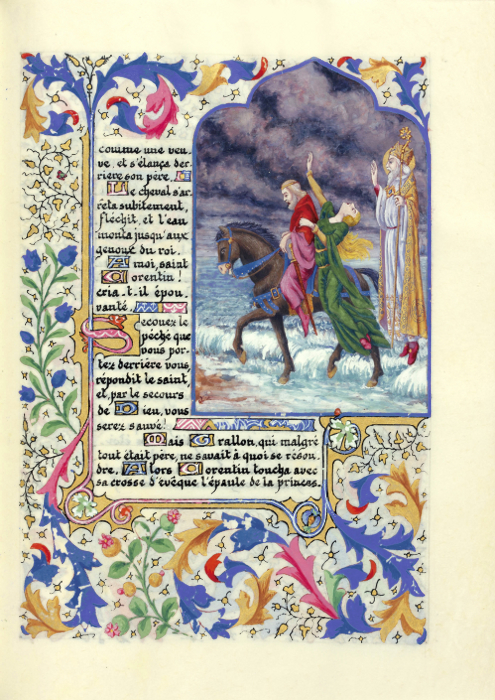 comme une veu
ve, et s'élança der
rière son père.
Le cheval s'ar
rêta subitement,
fléchit, et l'eau
monta jusqu'aux
genoux du roi.
A moi, saint
Corentin!
cria-t-il épou
vanté.
Secouez le
péché que
vous por-
tez derrière vous,
répondit le saint,
et, par le secours
de Dieu, vous
serez sauvé!
Mais Grallon, qui malgré
tout était père, ne savait à quoi se résou
dre, Alors Corentin toucha avec
sa crosse d'évêque l'épaule de la princes.